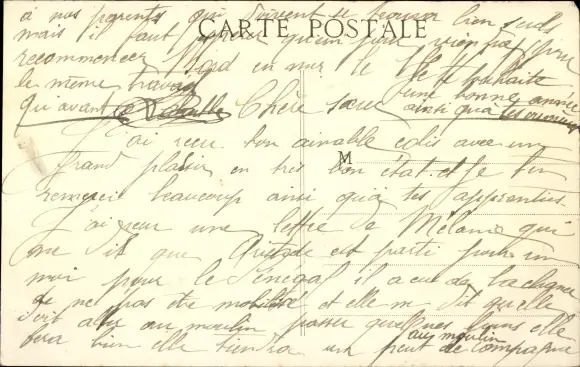 à nos parents qui doivent se trouver bien seuls
CARTE POSTALE
mais il faut espérer qu'un jour viendra pour
recommencer
le même travail
qu'avant
Je te souhaite
une bonne année
ainsi qu'à tes
Chère sœur
J'ai reçu ton aimable colis avec un
M
grand plaisir en très bon état et je t'en
remercie beaucoup ainsi qu'à tes apprenties
J'ai reçu une lettre de Mélanie qui
me dit que Aristide est parti pour un
mois pour le Sénégal il a eu de la chance
de ne pas être mobilisé et elle me dit qu'elle
doit aller au moulin passer quelques jours elle
fera bien elle tiendra un peut de compagnie
au moulin